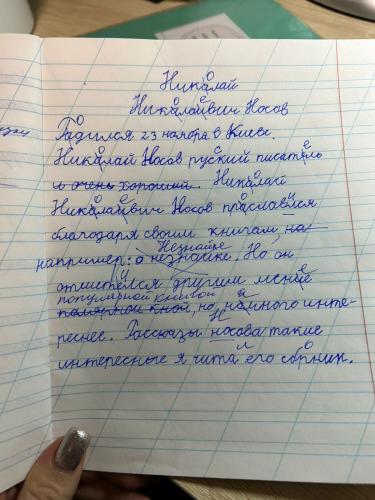 Николай
Николаевич Носов
Родился 23 ноября в Киеве.
Николай Носов русский писатель
и очень хороший. Николай
Николаевич Носов прославился
благодаря своим книгам, на-
например: о Незнайке. Но он
отличился другими менее
популярной книгой, но, намного инте-
реснее. Рассказы Носова такие
интересные я читал его сборник.